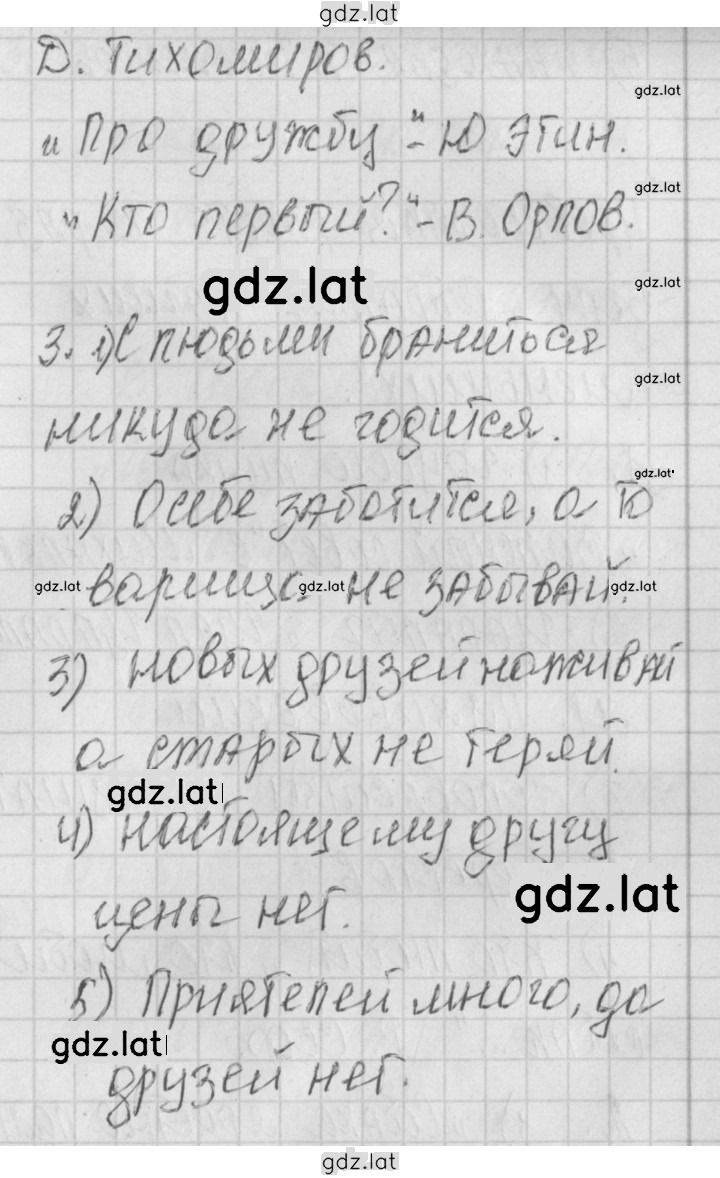 gdz.lat
Д. Тихомиров.
gdz.lat
"Про дружбу" - Ю Этин.
gdz.lat
"Кто первый?" - В. Орлов.
gdz.lat
gdz.lat
3. 1) С людьми браниться
gdz.lat
никуда не годится.
gdz.lat
2) О себе заботится, а то
gdz.lat варища gdz.lat не забывай. gdz.lat
3) новых друзей наживай
а старых не теряй.
gdz.lat
4) настоящему другу
gdz.lat
цены нет.
5) Приятелей много, да
gdz.lat
друзей нет.
gdz.lat